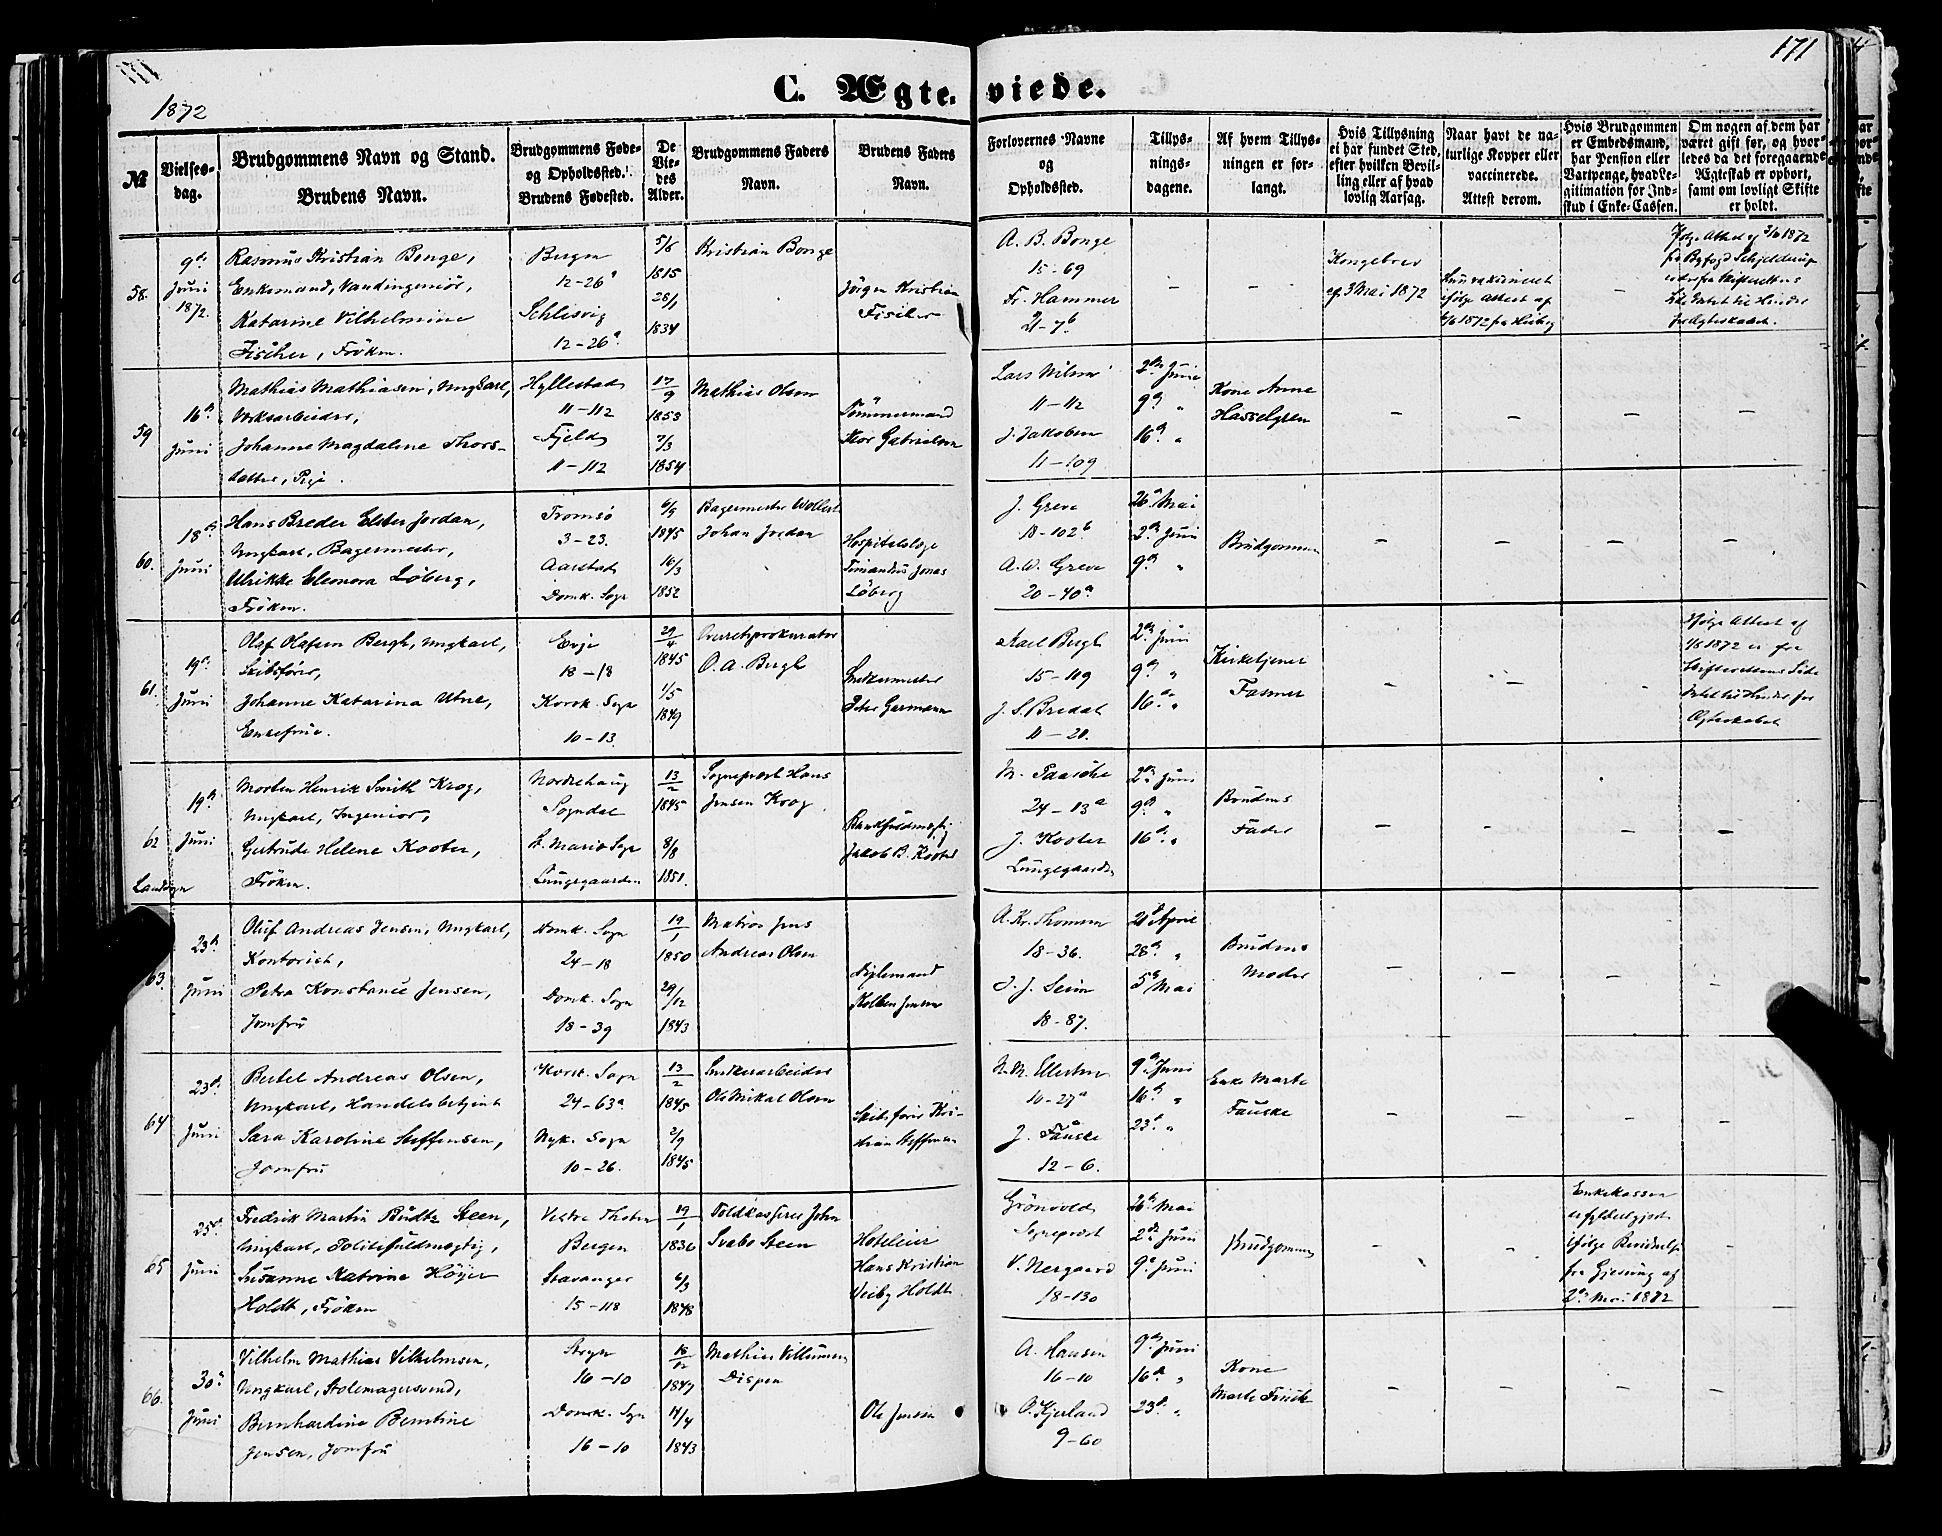 171
1872
C. Ægte-viede.
№
Vielses-
dag.
Brudgommens Navn og Stand.
Brudens Navn.
Brudgommens Føde-
og Opholdssted.
Brudens Fødested.
De
Vie-
des
Alder.
Brudgommens Faders
Navn.
Brudens Faders
Navn.
Forlovernes Navne
og
Opholdssted.
Tillys-
nings-
dagene.
Af hvem Tillys-
ningen er for-
langt.
Hvis Tillysning
ei har fundet Sted,
efter hvilken Bevil-
ling eller af hvad
lovlig Aarsag.
Naar havt de na-
turlige Kopper eller
vaccinerede.
Attest derom.
Hvis Brudgommen
er Embedsmand,
har Pension eller
Vartpenge, hvad Le-
gitimation for Ind-
skud i Enke-Cassen.
Om nogen af dem har
været gift før, og hvor-
ledes da det foregaaende
Ægteskab er ophørt,
samt om lovligt Skifte
er holdt.
58.
9de
Juni
1872.
Rasmus Kristian Bonge,
Enkemand, Vandingeniør,
Katarine Vilhelmine
Fischer, Frøken.
Bergen
12-26a
Schlesvig
12-26a
5/6
1815
28/1
1834
Kristian Bonge
Jørgen Kristian
Fischer
A. B. Bonge
15-69
Fr. Hammer
21-7b
-
-
Kongebrev
af 3 Mai 1872
-
59
16de
Juni
Mathias Mathiasen, Ungkarl,
Værksarbeider,
Johanne Magdalene Thors-
datter, Pige.
Hyllestad
11-112
Fjeld
11-112
17/9
1853
7/3
1854
Mathias Olsen
Tømmermand
Thor Gabrielsen
Lars Nilsen
11-112
J. Jakobsen
11-109
2den Juni
9de "
16de "
Kone Anne
Hasselgren
-
-
-
-
60.
18de
Juni
Hans Breder Elster Jordan,
Ungkarl, Bagermester,
Ulrikke Eleonora Løberg,
Frøken.
Tromsø
3-23.
Aarstad
Domk. Sogn
6/5
1845
16/3
1852
Bagermester Wollert
Johan Jordan
Hospitalslæge
Timandus Jonas
Løberg
J. Greve
18-102b
A. W. Greve
20-40a
26de Mai
2den Juni
9de "
Brudgommen
-
-
-
-
61.
19de
Juni
Olaf Olafsen Bergh, Ungkarl,
Skibsfører,
Johanne Katarina Utne,
Enkefrue.
Evje
18-18
Korsk. Sogn
10-13.
29/4
1845
1/5
1849
Overretsprokurator
O. A. Bergh
Snekkermester
Peter Garmann
Karl Bergh
15-119
J. S. Bredal
11-21.
2den Juni
9de "
16de "
Kirketjener
Fasmer
-
-
-
Ifølge Attest af
62
Landsogn
19de
Juni
Morten Henrik Smith Krog,
Ungkarl, Ingeniør,
Gertrude Helene Kooter,
Frøken.
Norderhaug
Sogndal
St. Maria Sogn
Lungegaarden
13/2
1845
8/8
1851.
Sogneprest Hans
Jensen Krog
Bankfuldmægtig
Jakob B. Kooter
M. Paasche
24-13a
J. Kooter
Lungegaarden
2den Juni
9de "
16de "
Brudens
Fader
-
-
-
-
63.
23de
Juni
Oluf Andreas Jensen, Ungkarl,
Kontorist,
Petra Konstance Jensen,
Jomfru
Domk. Sogn
24-18
Domk. Sogn
18-39
19/1
1850
29/12
1843
Matros Jens
Andreas Olsen
Kolben Jensen
A. Kr. Thomsen
18-36.
J. J. Seim
18-87.
21de April
28de "
5te Mai
Brudens
Moder
-
-
-
-
64
23de
Juni
Bertel Andreas Olsen,
Ungkarl, Handelsbetjent
Sara Karoline Steffensen,
Jomfru
Korsk. Sogn
24-63a
Nyk. Sogn
10-26.
13/2
1845
2/9
1845
Snekkerarbeider
Ole Mikal Olsen
Skibsfører Kri-
stian Steffensen
10-27a
J. Fauske
12-6.
9de Juni
16de "
23de "
Enke Marte
Fauske
-
-
-
-
65
25de
Juni
Fredrik Martin Budtz Steen,
Ungkarl, Politifuldmægtig,
Susanne Katrine Höyer
Holdt, Frøken
Vestre Thoten
Bergen
Stavanger
15-118
19/1
1836
6/3
1848
Toldkasserer John
Svabo Steen
Hoteleier
Hans Kristian
Veiby Holdt
Grønvold
Sogneprest
V. Nergaard
18-130
26de Mai
2den Juni
9de Juni
Brudgommen
-
-
Enkekassen
ifølge
fra Gjessing af
2den Mai 1872
-
66.
30te
Juni
Vilhelm Mathias Vilhelmsen,
Ungkarl, Stolemagersvend,
Bernhardine Berntine
Jensen, Jomfru
Stryn
16-10
Domk. Sogn
16-10
16/12
1847
14/4
1843
Mathias Villumsen
Dispen
Ole Jensen
A. Hansen
16-10
O. Kjerland
9-60
9de Juni
16de "
23de "
Kone
-
-
-
-